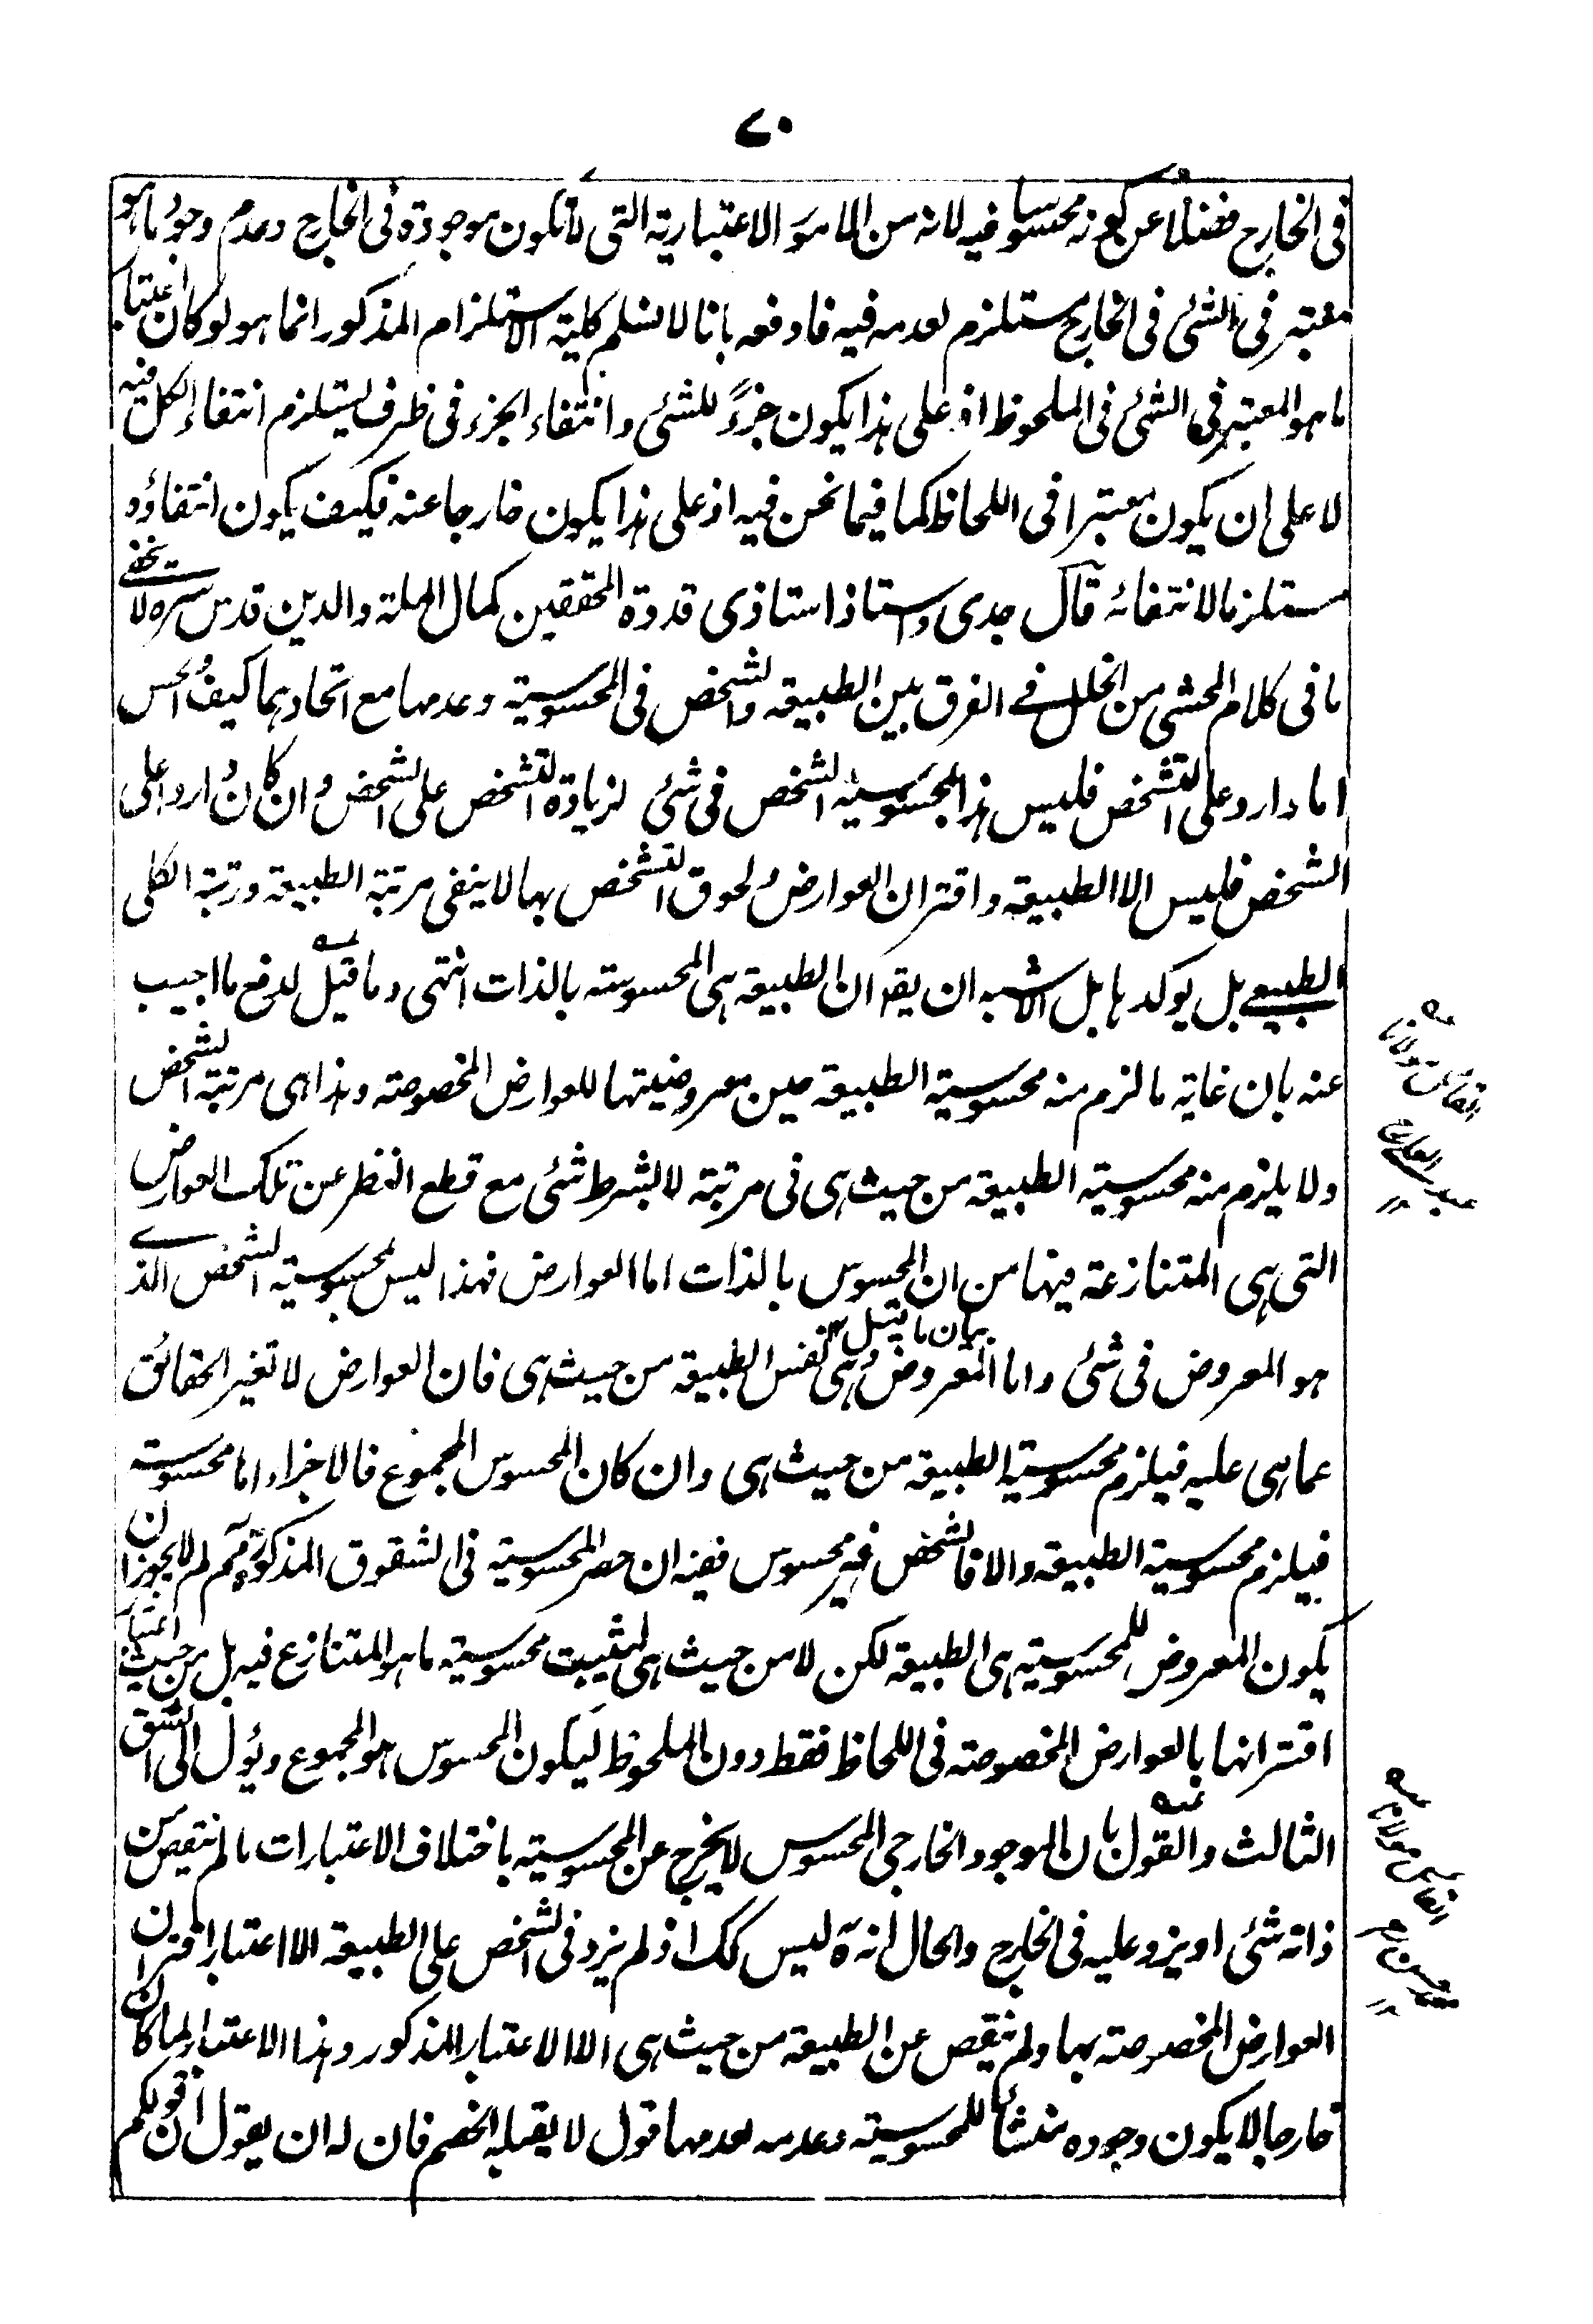 ٧٠
فى الخارج فضلا عن كونه محسوسا فيه لانه من الامور الاعتبارية التى لا تكون موجودة فى الخارج وعدم وجود ما هو
معتبر فى الشئ فى الخارج مستلزم لعدمه فيه فادفعه بانا لا نسلم كلية الاستلزام المذكور انما هو لو كان اعتبار
ما هو المعتبر فى الشئ فى الملحوظ اذ على هذا يكون جزءً للشئ وانتفاء الجزء فى ظرف يستلزم انتفاء الكل فيه
لا على ان يكون معتبرا فى اللحاظ كما فيما نحن فيه اذ على هذا يكون خارجا عنه فكيف يكون انتفاؤه
مستلزما لانتفائه قال جدى واستاذ استاذى قدوة المحققين كمال الملة والدين قدس سره لا يخفى
ما فى كلام المحشى من الخلل فى الفرق بين الطبيعة والشخص فى المحسوسية وعدمها مع اتحادهما كيف والحس
اما وارد على التشخص فليس هذا المحسوسية الشخص فى شئ لزيادة التشخص على الشخص وان كان واردا على
الشخص فليس الا الطبيعة واقتران العوارض ولحوق التشخص بها لا ينفى مرتبة الطبيعة ورتبة الكلى
الطبيعى بل يوكدها بل الاشبه ان يقه ان الطبيعة هى المحسوسة بالذات انتهى وما قيل لدفع ما اجيب
عنه بان غاية ما لزم منه محسوسية الطبيعة حين معروضيتها للعوارض المخصوصة وهذا هى مرتبة الشخص
ولا يلزم منه محسوسية الطبيعة من حيث هى فى مرتبة لا بشرط شئ مع قطع النظر عن تلك العوارض
التى هى المتنازعة فيها من ان المحسوس بالذات اما العوارض فهذا ليس محسوسية الشخص الذى
بيان ما قيل
هو المعروض فى شئ واما المعروض وهى نفس الطبيعة من حيث هى فان العوارض لا تغير الحقائق
عما هى عليه فيلزم محسوسية الطبيعة من حيث هى وان كان المحسوس المجموع فالاجزاء اما محسوسة
فيلزم محسوسية الطبيعة والا فالشخص غير محسوس ففيه ان حصر المحسوسية فى الشقوق المذكورة مم لم لا يجوز ان
يكون المعروض للمحسوسية هى الطبيعة لكن لا من حيث هى ليثبت محسوسية ما هو المتنازع فيه بل من حيث اعتبار
اقترانها بالعوارض المخصوصة فى اللحاظ فقط دون الملحوظ ليكون المحسوس هو المجموع ويؤل الى الشق
الثالث والقول بان الموجود الخارجى المحسوس لا يخرج عن المحسوسية باختلاف الاعتبارات ما لم ينتقص من
ذاته شئ او يزد عليه فى الخارج والحال انه ليس كك اذ لم يزد فى الشخص على الطبيعة الا اعتبار اقتران
العوارض المخصوصة بها ولم ينقص عن الطبيعة من حيث هى الا الاعتبار المذكور وهذا الاعتبار لما كان
خارجا لا يكون وجوده منشأ للمحسوسية وعدمه لعدمها قول لا يقبله الخصم فان له ان يقول ان قولكم
القائل مولانا
القائل مولانا